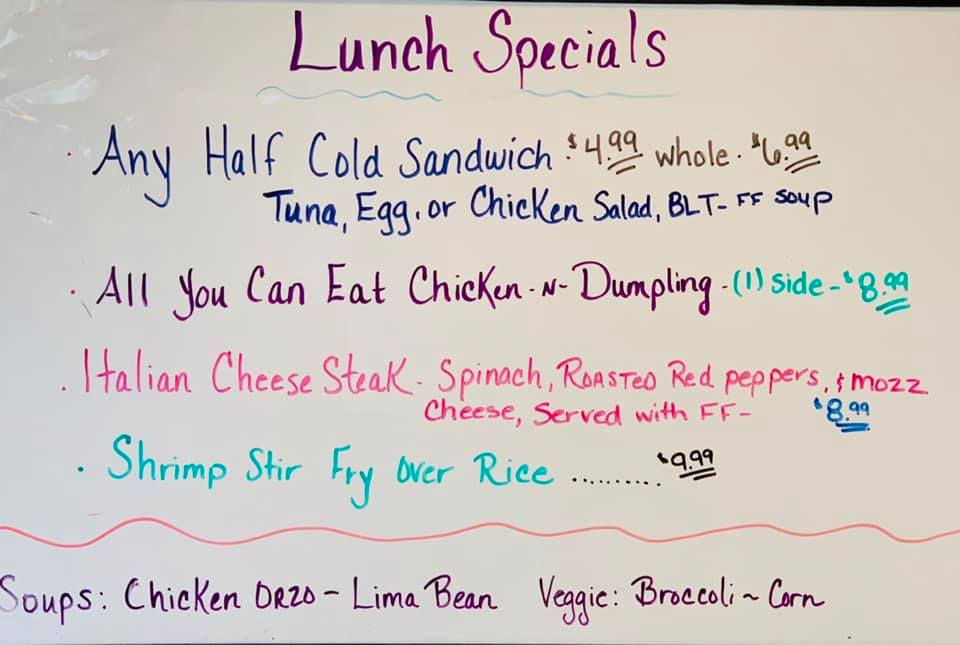 Lunch Specials
· Any Half Cold Sandwich · $4.99 whole · $6.99
Tuna, Egg, or Chicken Salad, BLT - FF SOUP
· All You Can Eat Chicken - N - Dumpling - (1) Side - $8.99
· Italian Cheese Steak - Spinach, Roasted Red peppers, & mozz
Cheese, Served with FF - $8.99
· Shrimp Stir Fry Over Rice .......... $9.99
Soups: Chicken Orzo - Lima Bean Veggie: Broccoli ~ Corn